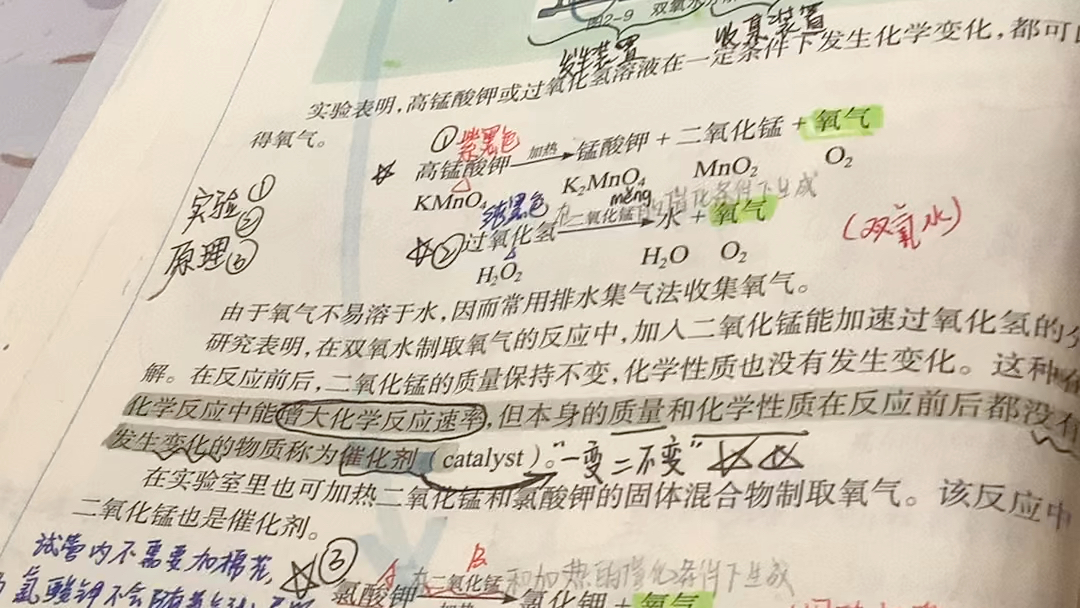 图2-9 双氧水分解
发生装置 收集装置
实验表明，高锰酸钾或过氧化氢溶液在一定条件下发生化学变化，都可以
得氧气。
①紫黑色
☆ 高锰酸钾 加热→ 锰酸钾 + 二氧化锰 + 氧气
KMnO₄ K₂MnO₄ MnO₂ O₂
实验①
②
原理③
méng
☆②过氧化氢 在二氧化锰的催化条件下生成→ 水 + 氧气 (双氧水)
H₂O₂ H₂O O₂
由于氧气不易溶于水，因而常用排水集气法收集氧气。
研究表明，在双氧水制取氧气的反应中，加入二氧化锰能加速过氧化氢的分
解。在反应前后，二氧化锰的质量保持不变，化学性质也没有发生变化。这种在
化学反应中能增大化学反应速率，但本身的质量和化学性质在反应前后都没有
发生变化的物质称为催化剂（catalyst）。“一变二不变”☆☆
在实验室里也可加热二氧化锰和氯酸钾的固体混合物制取氧气。该反应中
二氧化锰也是催化剂。
试管内不需要加棉花，
☆③
氯酸钾 在二氧化锰和加热的催化条件下生成→ 氯化钾 + 氧气
加热
氯酸钾不会随着